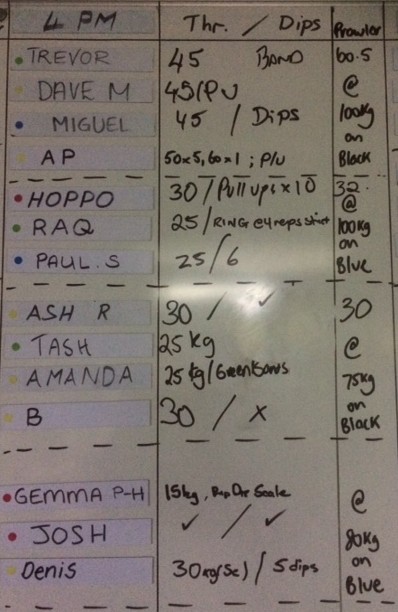 4 PM Thr. / Dips Prowler
TREVOR 45 BAND 60.5
DAVE M 45/PU @
MIGUEL 45 / Dips 100kg
on
AP 50x5, 60x1 ; P/U Black
HOPPO 30/Pull ups x 10 32.
@
RAQ 25/RING @ 4 reps 100kg
on
PAUL.S 25/6 Blue
ASH R 30 / ✓ 30
TASH 25 kg @
AMANDA 25 kg/Green 75kg
on
B 30 / x Black
GEMMA P-H 15kg, Rep Dr Scale @
JOSH ✓ / ✓ 80kg
on
Denis 30kg(Sc) / 5 dips Blue